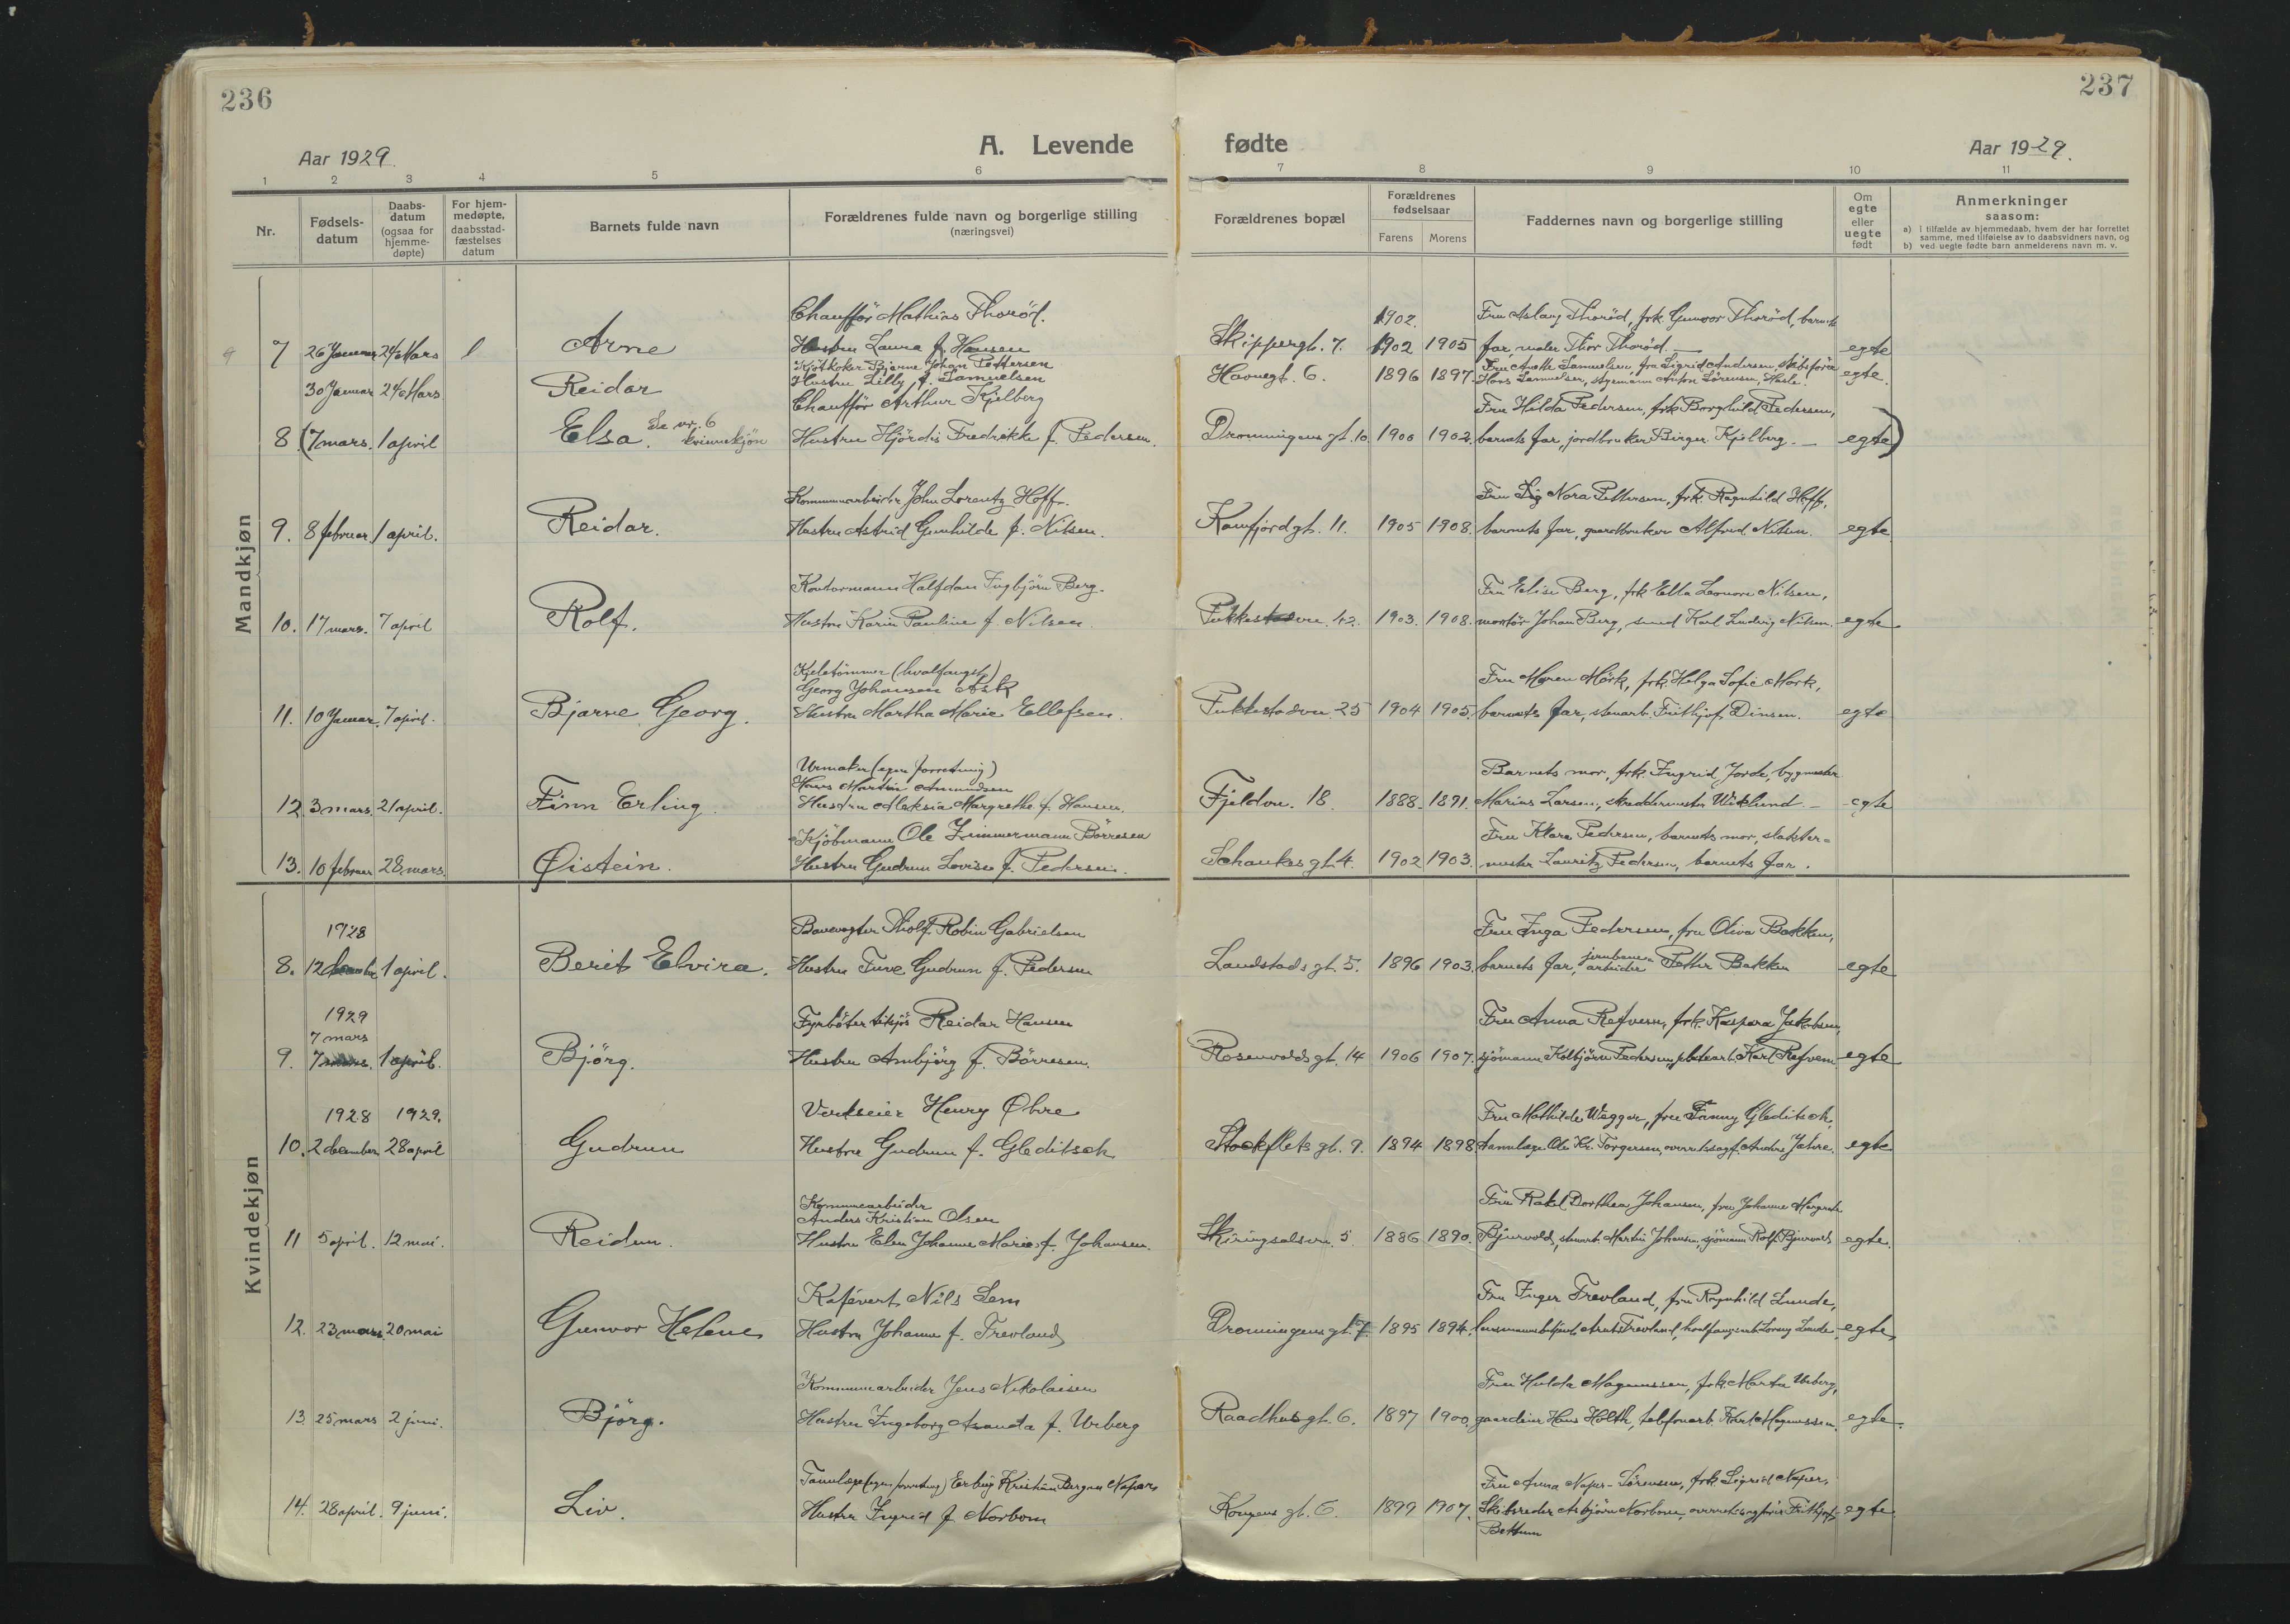 236
237
Aar 1929.
A. Levende
fødte
Aar 1929.
1 2 3 4 5 6 7 8 9 10 11
Nr.
Fødsels-
datum
Daabs-
datum
(ogsaa for
hjemme-
døpte)
For hjem-
medøpte,
daabsstad-
fæstelses
datum
Barnets fulde navn
Forældrenes fulde navn og borgerlige stilling
(næringsvei)
Forældrenes bopæl
Forældrenes
fødselsaar
Farens Morens
Faddernes navn og borgerlige stilling
Om
egte
eller
uegte
født
Anmerkninger
saasom:
a) i tilfælde av hjemmedaab, hvem der har forrettet
samme, med tilføielse av to daabsvidners navn, og
b) ved uegte fødte barn anmelderens navn m. v.
Mandkjøn
Chauffør Mathias Thorød. 1902. Fru Aslaug Thorød, frk. Gunvor Thorød, barnets
7 26 Januar 24 Mars Arne Hustru Laura f. Hansen Skippergt. 7. 1902 1905 far, maler Thor Thorød egte
Kjøtkoker Bjarne Johan Pettersen Fru Anette Samuelsen, fru Sigrid Andersen, skibsfører
30 Januar 24 Mars Reidar Hustru Lilly f. Samuelsen Havnegt. 6. 1896 1897. Hans Samuelsen, styrmann Anton Sørensen, Hasle. egte.
Chauffør Arthur Kjelberg Fru Hilda Pedersen, frk. Borghild Pedersen,
8 (7 mars. 1 april Elsa. Se nr. 6 kvinnekjøn Hustru Hjørdis Fredrikke f. Pedersen. Dronningens gt. 10 1900 1902. barnets far, jordbruker Birger Kjelberg. egte)
Kommunearbeider John Lorentz Hoff. Fru Nora Pettersen, frk. Ragnhild Hoff,
9. 8 februar. 1 april. Reidar. Hustru Astrid Gunhilde f. Nilsen. Kamfjordgt. 11. 1905 1908. barnets far, gaardbruker Alfred Nilsen. egte
Kontormann Halfdan Ingbjørn Berg. Fru Elise Berg, frk Ella Leonore Nilsen,
10. 17 mars. 7 april Rolf. Hustru Karin Pauline f. Nilsen. 42. 1903. 1908. montør Johan Berg, smed Karl Ludvig Nilsen. egte
Kjeletømmer (hvalfangst)
Georg Johansen Ask Fru Maren Mørk, frk. Helga Sofie Mørk,
11. 10 Januar. 7 april. Bjarne Georg. Hustru Martha Marie Ellefsen. Pukkestadvn. 25 1904 1905. barnets far, stenarb. Frithjof Dinsen. egte
Urmaker (egen forretning)
Hans Martin Amundsen Barnets mor, frk. Ingrid Jorde, bygmester
12. 3 mars. 21 april. Finn Erling. Hustru Aleksia Margrethe f. Hansen. Fjeldvn. 18. 1888. 1891. Marius Larsen, skreddermester Wiklund egte
Kjøbmann Ole Zimmermann Børresen Fru Klara Pedersen, barnets mor, slakter-
13. 10 februar 28 mars. Øistein. Hustru Gudrun Lovise f. Pedersen. Schankes gt. 4. 1902 1903. mester Lauritz Pedersen, barnets far.
Kvindekjøn
1928 Banevogter Robin Gabrielsen Fru Inga Pedersen, fru Oliva Bakken,
8. 12 december 1 april. Berit Elvira. Hustru Tuve Gudrun f. Pedersen Landstads gt. 5. 1896 1903. barnets far, jernbane-arbeider Petter Bakken egte
1929
7 mars Fyrbøter tilsjøs Reidar Hansen Fru Anna Refvem, frk. Kaspara Jakobsen,
9. 7 mars. 1 april. Bjørg. Hustru Ambjørg f. Børresen. Rosenvoldsgt. 14 1906 1907. sjømann Kolbjørn Pedersen, platearb. Karl Refvem egte
1928 1929. Verkseier Henry Øhre Fru Mathilde Wegger, fru Fanny Gleditsch,
10. 2 december 28 april Gudrun Hustru Gudrun f. Gleditsch Stockflets gt. 9. 1894 1898. tannlæge Ole Kr. Torgersen, overretssagf. Anders Jahre. egte
Kommunearbeider
Anders Kristian Olsen Fru Rakel Dorthea Johansen, fru Johanne Margrete
11 5 april. 12 mai. Reidun. Hustru Elen Johanne Marie f. Johansen. Skiringsalsvn. 5 1886 1890. Bjurvold, stenarb. Martin Johansen, sjømann Rolf Bjurvold egte.
Kafévert Nils Lem Fru Inger Trevland, fru Ragnhild Lunde,
12. 23 mars. 20 mai Gunvor Helene Hustru Johanne f. Trevland Dronningens gt. 7 1895 1894. lensmannsbetjent Trevland, hvalfangerarb. Lunde egte
Kommunearbeider Jens Nikolaisen Fru Hulda Magnussen, frk. Marta Urberg,
13. 25 mars 2 juni. Bjørg. Hustru Ingeborg Asanda f. Urberg Raadhusgt. 6. 1897 1900. gaardeier Hans Holth, telefonarb. Karl Magnussen. egte.
Tannlæge (egen forretning) Erling Kristian Bergan Naper Fru Anna Naper-Sørensen, frk. Sigrid Naper,
14. 28 april. 9 juni. Liv. Hustru Ingrid f. Norbom Kongens gt. 6. 1899 1907. Skibsreder Asbjørn Norbom, overretssagfører Frithjof egte
Bettum